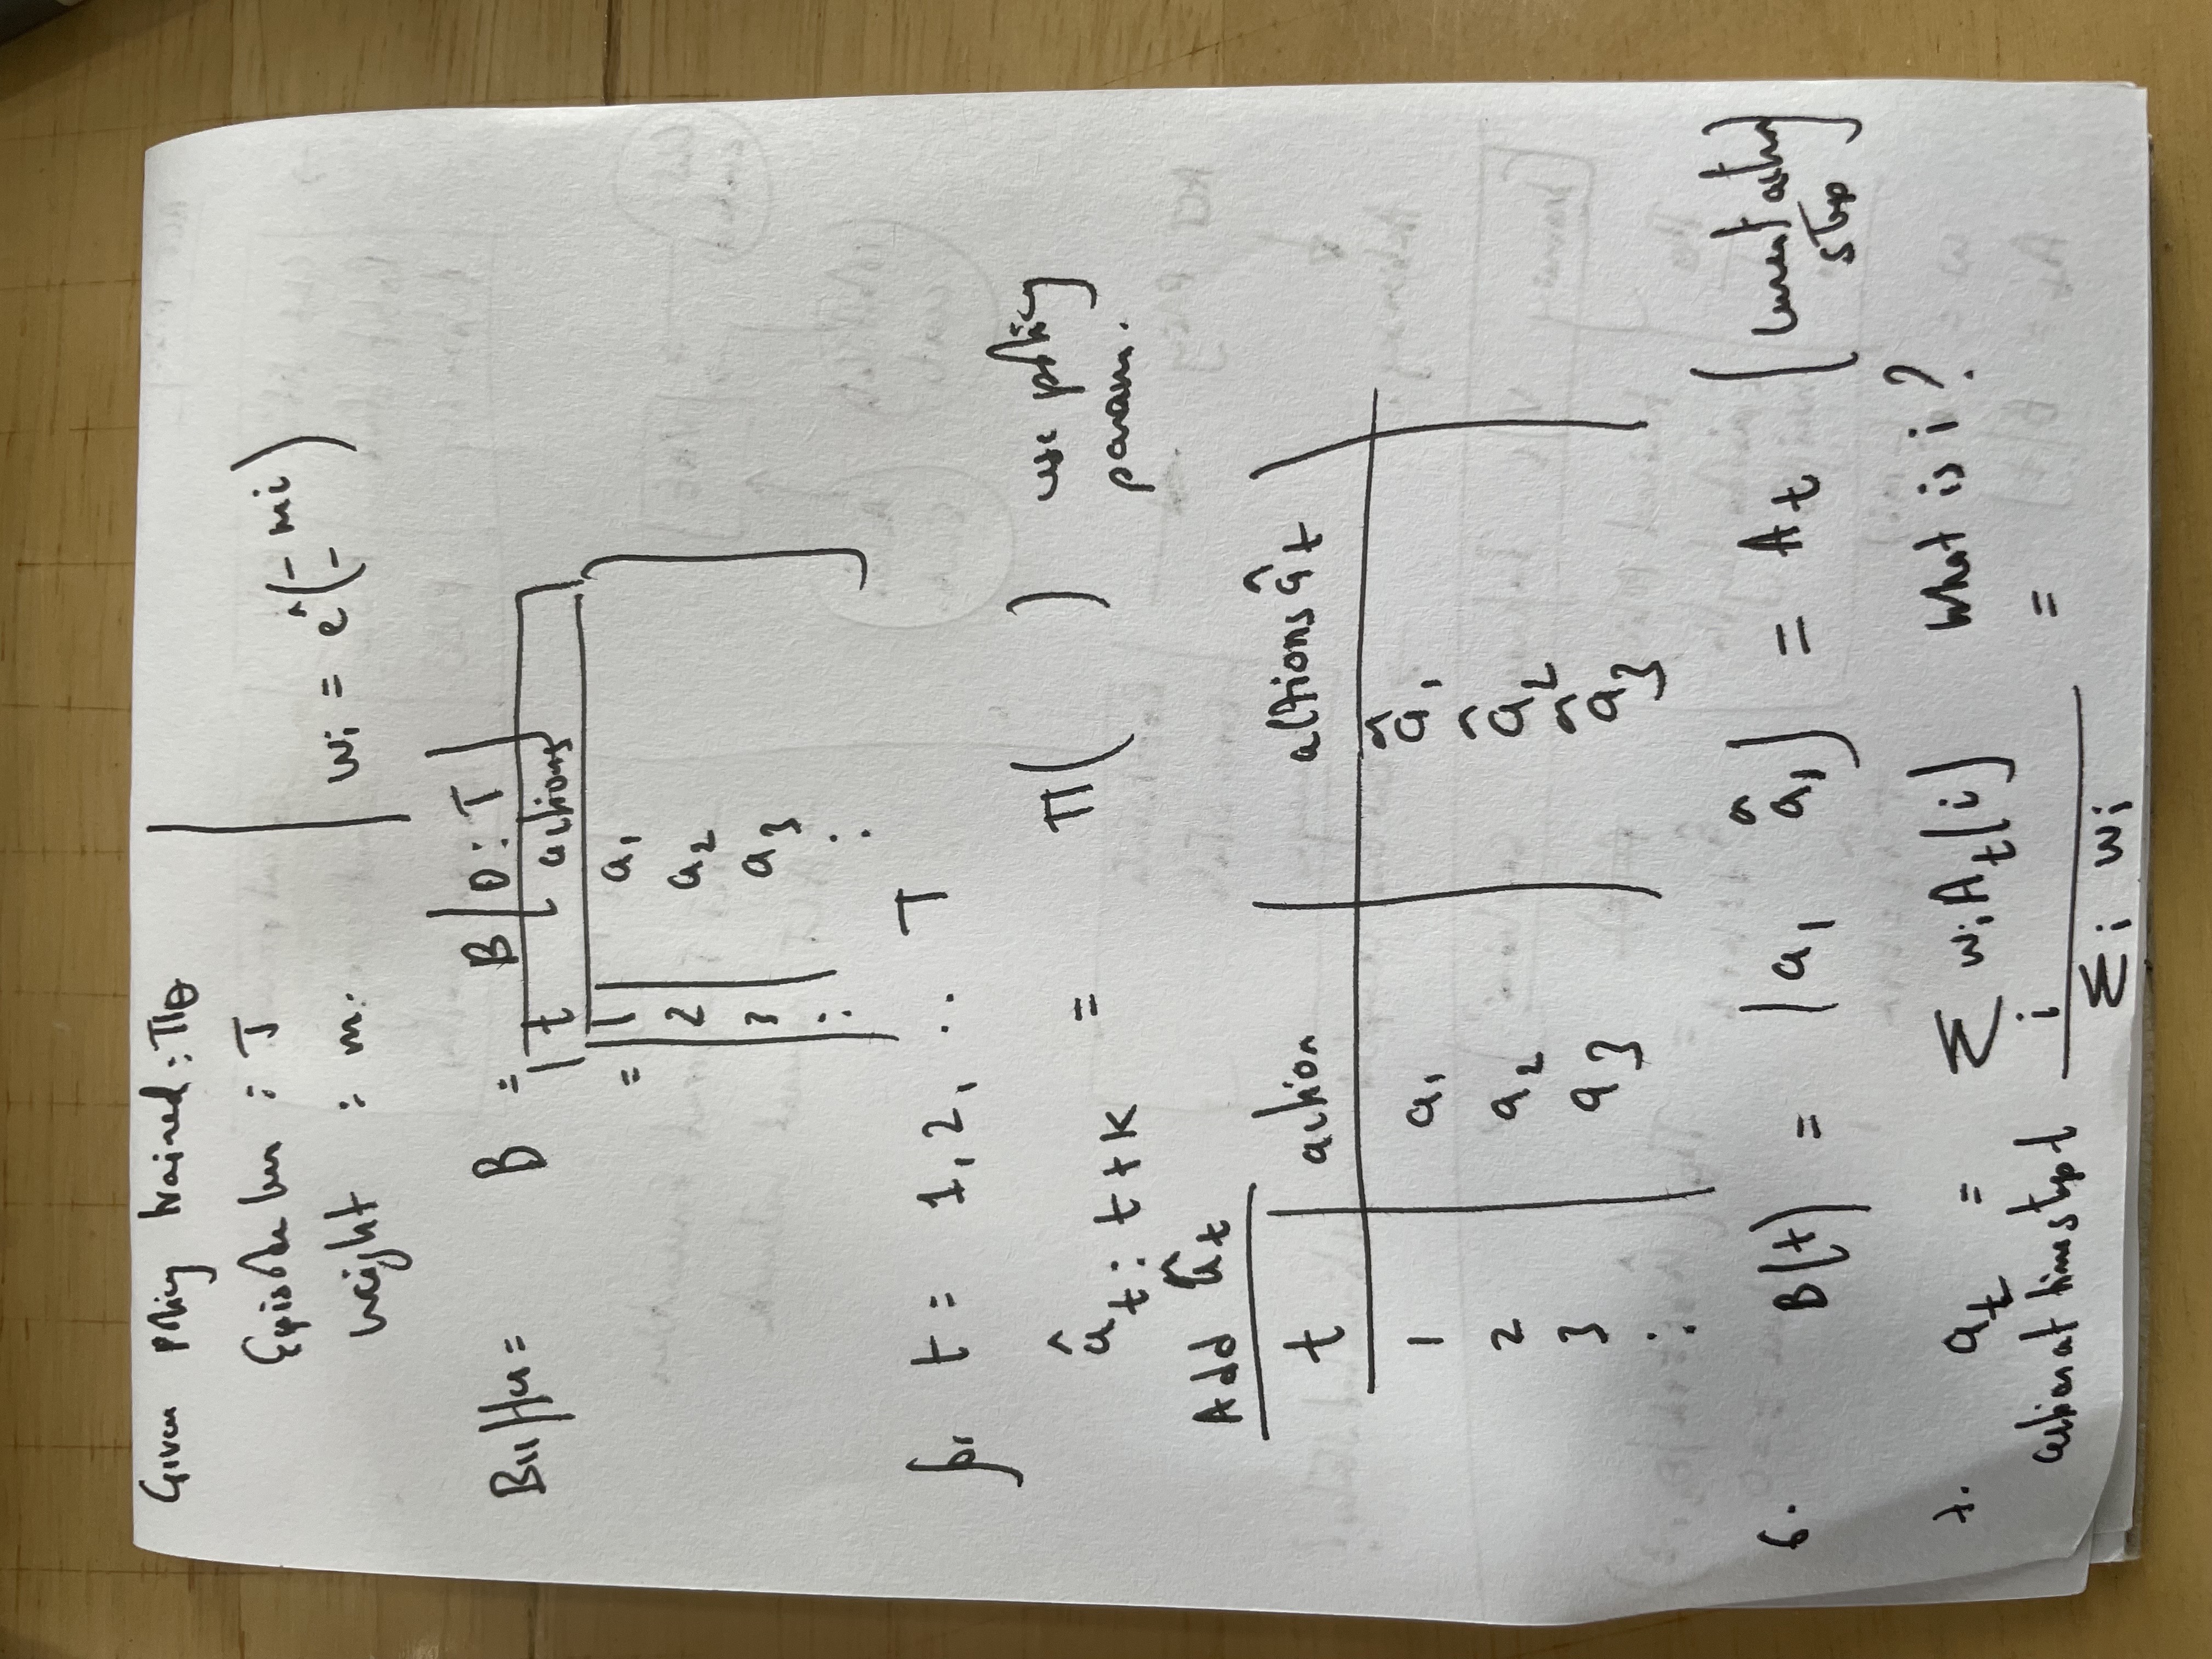 Given policy trained : πθ
Episode len : T
weight : m.
wi = e^(- mi)
Buffer = B = B[0:T]
t actions
= 1 a1
2 a2
3 a3
: :
for t = 1, 2, .. T
ât : t+k = π( ) use policy
param.
Add ât
t action actions ât
1 a1 â1
2 a2 â2
3 a3 â3
:
6. B[t] = [a1 â1] = At [current action
step]
7. at = Σ wi At[i] What is i?
action at timestep t i =
Σi wi